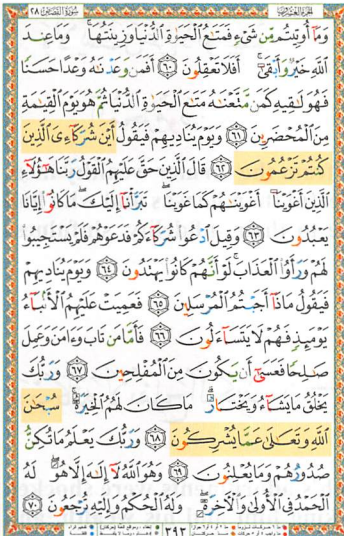 سُورَةُ القَصَصِ ٢٨
الجُزْءُ العِشْرُونَ
وَمَآ أُوتِيتُم مِّن شَىْءٍ فَمَتَٰعُ ٱلْحَيَوٰةِ ٱلدُّنْيَا وَزِينَتُهَا ۚ وَمَا عِندَ
ٱللَّهِ خَيْرٌ وَأَبْقَىٰٓ ۚ أَفَلَا تَعْقِلُونَ ٦٠ أَفَمَن وَعَدْنَٰهُ وَعْدًا حَسَنًا
فَهُوَ لَٰقِيهِ كَمَن مَّتَّعْنَٰهُ مَتَٰعَ ٱلْحَيَوٰةِ ٱلدُّنْيَا ثُمَّ هُوَ يَوْمَ ٱلْقِيَٰمَةِ
مِنَ ٱلْمُحْضَرِينَ ٦١ وَيَوْمَ يُنَادِيهِمْ فَيَقُولُ أَيْنَ شُرَكَآءِىَ ٱلَّذِينَ
كُنتُمْ تَزْعُمُونَ ٦٢ قَالَ ٱلَّذِينَ حَقَّ عَلَيْهِمُ ٱلْقَوْلُ رَبَّنَا هَٰٓؤُلَآءِ
ٱلَّذِينَ أَغْوَيْنَآ أَغْوَيْنَٰهُمْ كَمَا غَوَيْنَا ۖ تَبَرَّأْنَآ إِلَيْكَ ۖ مَا كَانُوٓا۟ إِيَّانَا
يَعْبُدُونَ ٦٣ وَقِيلَ ٱدْعُوا۟ شُرَكَآءَكُمْ فَدَعَوْهُمْ فَلَمْ يَسْتَجِيبُوا۟
لَهُمْ وَرَأَوُا۟ ٱلْعَذَابَ ۚ لَوْ أَنَّهُمْ كَانُوا۟ يَهْتَدُونَ ٦٤ وَيَوْمَ يُنَادِيهِمْ
فَيَقُولُ مَاذَآ أَجَبْتُمُ ٱلْمُرْسَلِينَ ٦٥ فَعَمِيَتْ عَلَيْهِمُ ٱلْأَنۢبَآءُ
يَوْمَئِذٍ فَهُمْ لَا يَتَسَآءَلُونَ ٦٦ فَأَمَّا مَن تَابَ وَءَامَنَ وَعَمِلَ
صَٰلِحًا فَعَسَىٰٓ أَن يَكُونَ مِنَ ٱلْمُفْلِحِينَ ٦٧ وَرَبُّكَ
يَخْلُقُ مَا يَشَآءُ وَيَخْتَارُ ۗ مَا كَانَ لَهُمُ ٱلْخِيَرَةُ ۚ سُبْحَٰنَ
ٱللَّهِ وَتَعَٰلَىٰ عَمَّا يُشْرِكُونَ ٦٨ وَرَبُّكَ يَعْلَمُ مَا تُكِنُّ
صُدُورُهُمْ وَمَا يُعْلِنُونَ ٦٩ وَهُوَ ٱللَّهُ لَآ إِلَٰهَ إِلَّا هُوَ ۖ لَهُ
ٱلْحَمْدُ فِى ٱلْأُولَىٰ وَٱلْءَاخِرَةِ ۖ وَلَهُ ٱلْحُكْمُ وَإِلَيْهِ تُرْجَعُونَ ٧٠
٣٩٣